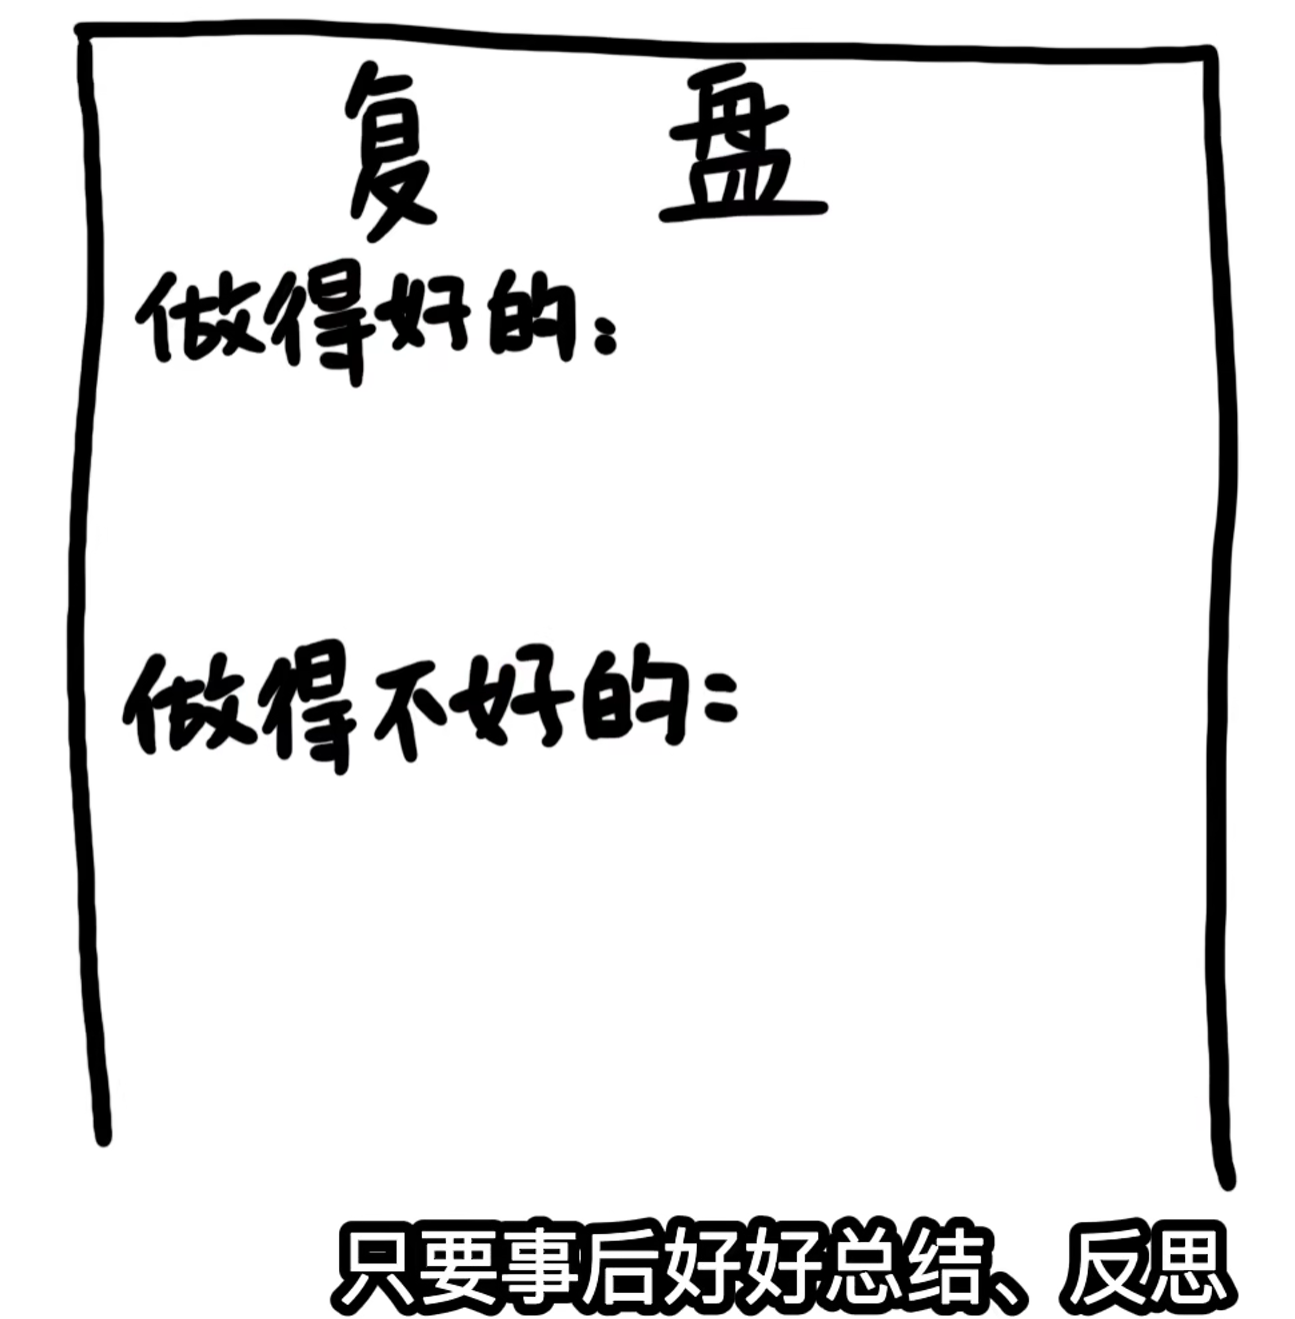 复 盘
做得好的：
做得不好的：
只要事后好好总结、反思